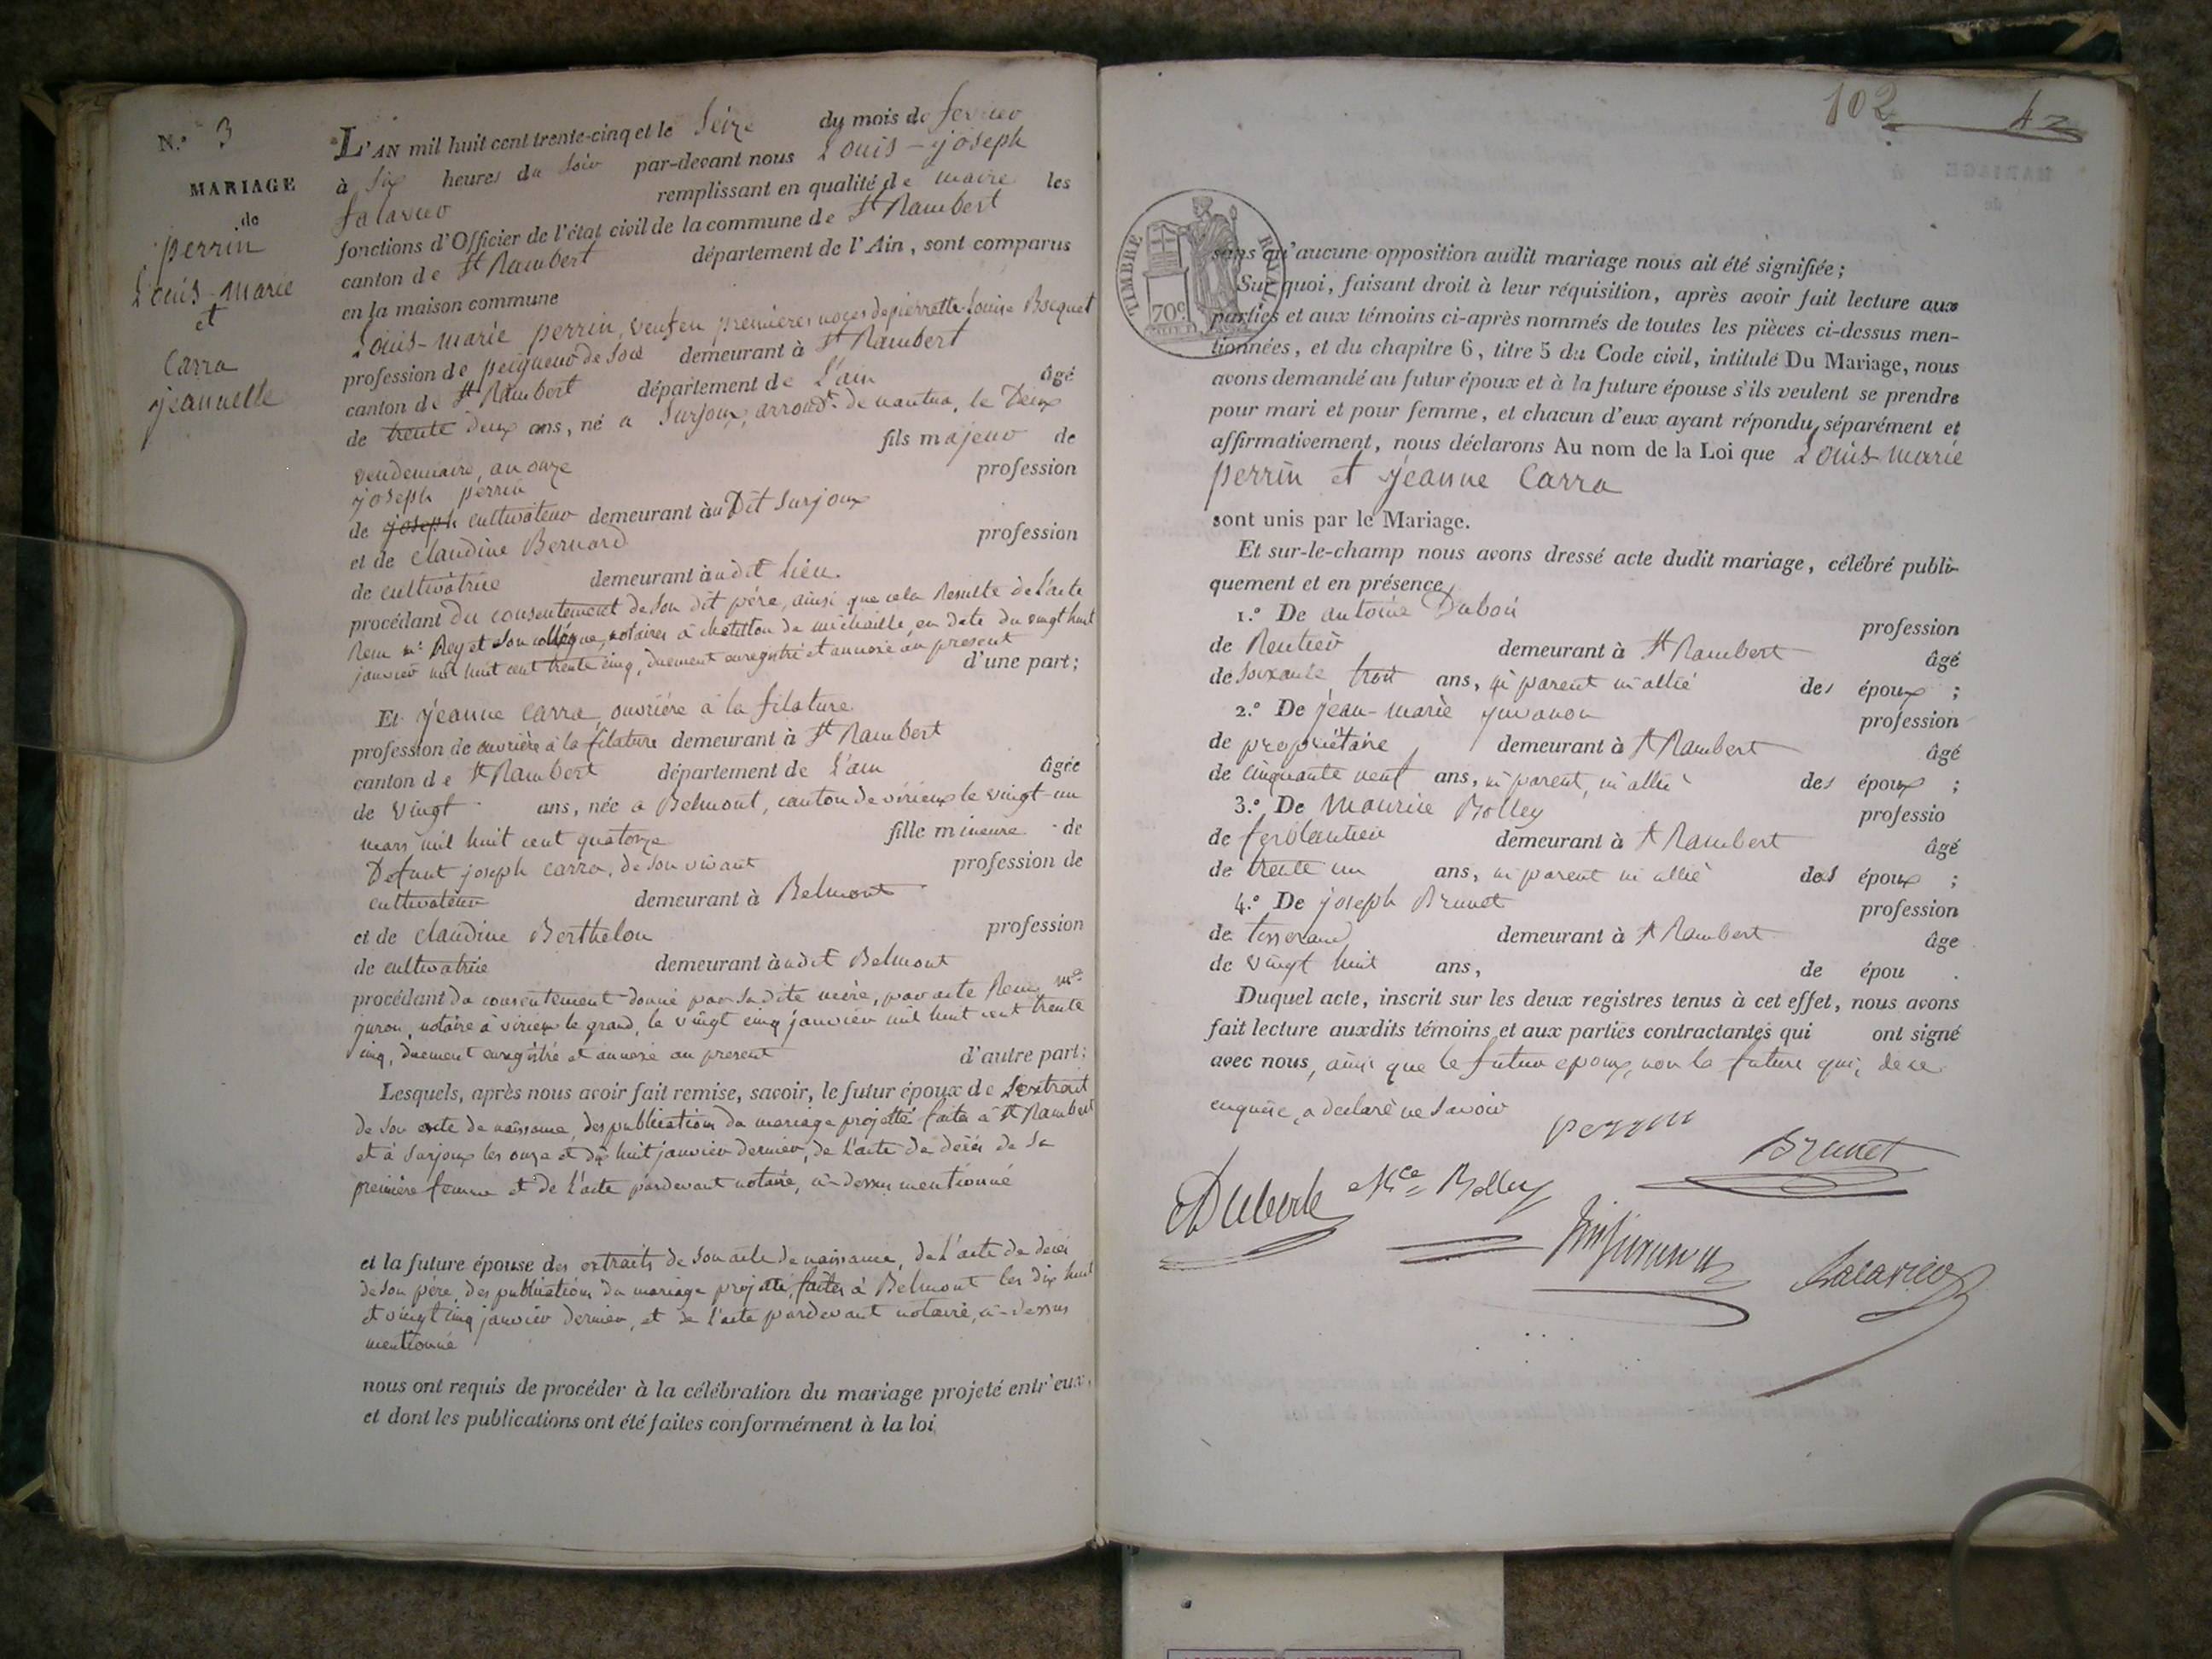 N.° 3
MARIAGE
de
perrin
Louis-marie
et
Carra
jeannette
L'AN mil huit cent trente-cinq et le Seize du mois de fevrier
à Six heures du soir par-devant nous Louis-joseph
Salavier remplissant en qualité de maire les
fonctions d'Officier de l'état civil de la commune de St Rambert
canton de St Rambert département de l'Ain, sont comparus
en la maison commune
Louis-marie perrin, veuf en premieres noces de pierrette-Louise Bocquet
profession de peigneur de Soie demeurant à St Rambert
canton de St Rambert département de L'ain âgé
de trente deux ans, né a Surjoux, arrondt. de nantua, le Deux
vendemiaire, an onze fils majeur de
joseph perrin profession
de joseph cultivateur demeurant au Dit Surjoux
et de claudine Bernard profession
de cultivatrice demeurant audit lieu.
procédant du consentement de Son dit père, ainsi que cela Resulte de L'acte
Recu me Rey et Son collègue, notaires à chatillon de michaille, en date du vingt huit
janvier mil huit cent trente cinq, duement enregistré et annexé au present
d'une part;
Et jeanne Carra, ouvrière à la filature
profession de ouvrière à la filature demeurant à St Rambert
canton de St Rambert département de L'ain âgée
de vingt ans, née a Belmont, canton de virieux le vingt-un
mars mil huit cent quatorze fille mineure de
Defunt joseph carra, de son vivant profession de
cultivateur demeurant à Belmont
et de claudine Berthelon profession
de cultivatrice demeurant audit Belmont
procédant du consentement donné par Sa dite mère, par acte Recu me
juron, notaire à virieux le grand, le vingt cinq janvier mil huit cent trente
cinq, duement enregistré et annexé au present d'autre part;
Lesquels, après nous avoir fait remise, savoir, le futur époux de L'extrait
de Son acte de naissance, des publications du mariage projetté faites à St Rambert
et à Surjoux les onze et dix huit janvier dernier, de L'acte de décès de Sa
première femme et de L'acte pardevant notaire, ci-dessus mentionné
et la future épouse des extraits de Son acte de naissance, de L'acte de décès
de Son père, des publications du mariage projetté, faites à Belmont les dix huit
et vingt cinq janvier dernier, et de l'acte pardevant notaire, ci-dessus
mentionné
nous ont requis de procéder à la célébration du mariage projeté entr'eux,
et dont les publications ont été faites conformément à la loi
102 42
TIMBRE ROYAL
70c.
sans qu'aucune opposition audit mariage nous ait été signifiée;
Sur quoi, faisant droit à leur réquisition, après avoir fait lecture aux
parties et aux témoins ci-après nommés de toutes les pièces ci-dessus men-
tionnées, et du chapitre 6, titre 5 du Code civil, intitulé Du Mariage, nous
avons demandé au futur époux et à la future épouse s'ils veulent se prendre
pour mari et pour femme, et chacun d'eux ayant répondu séparément et
affirmativement, nous déclarons Au nom de la Loi que Louis-marie
perrin et jeanne Carra
sont unis par le Mariage.
Et sur-le-champ nous avons dressé acte dudit mariage, célébré publi-
quement et en présence
1.° De antoine profession
de Rentier demeurant à St Rambert âgé
de Soixante trois ans, ni parent ni allié des époux ;
2.° De jean-marie juvanon profession
de propriétaire demeurant à St Rambert âgé
de cinquante neuf ans, ni parent, ni allié des époux ;
3.° De Maurice Bolley professio
de ferblantier demeurant à St Rambert âgé
de trente un ans, ni parent ni allié des époux ;
4.° De joseph Brunet profession
de tisserand demeurant à St Rambert âge
de vingt huit ans, de épou .
Duquel acte, inscrit sur les deux registres tenus à cet effet, nous avons
fait lecture auxdits témoins et aux parties contractantes qui ont signé
avec nous, ainsi que le futur epoux, non la future qui, de ce
enquise, a declaré ne Savoir
perrin
Brunet
Mce Bolley